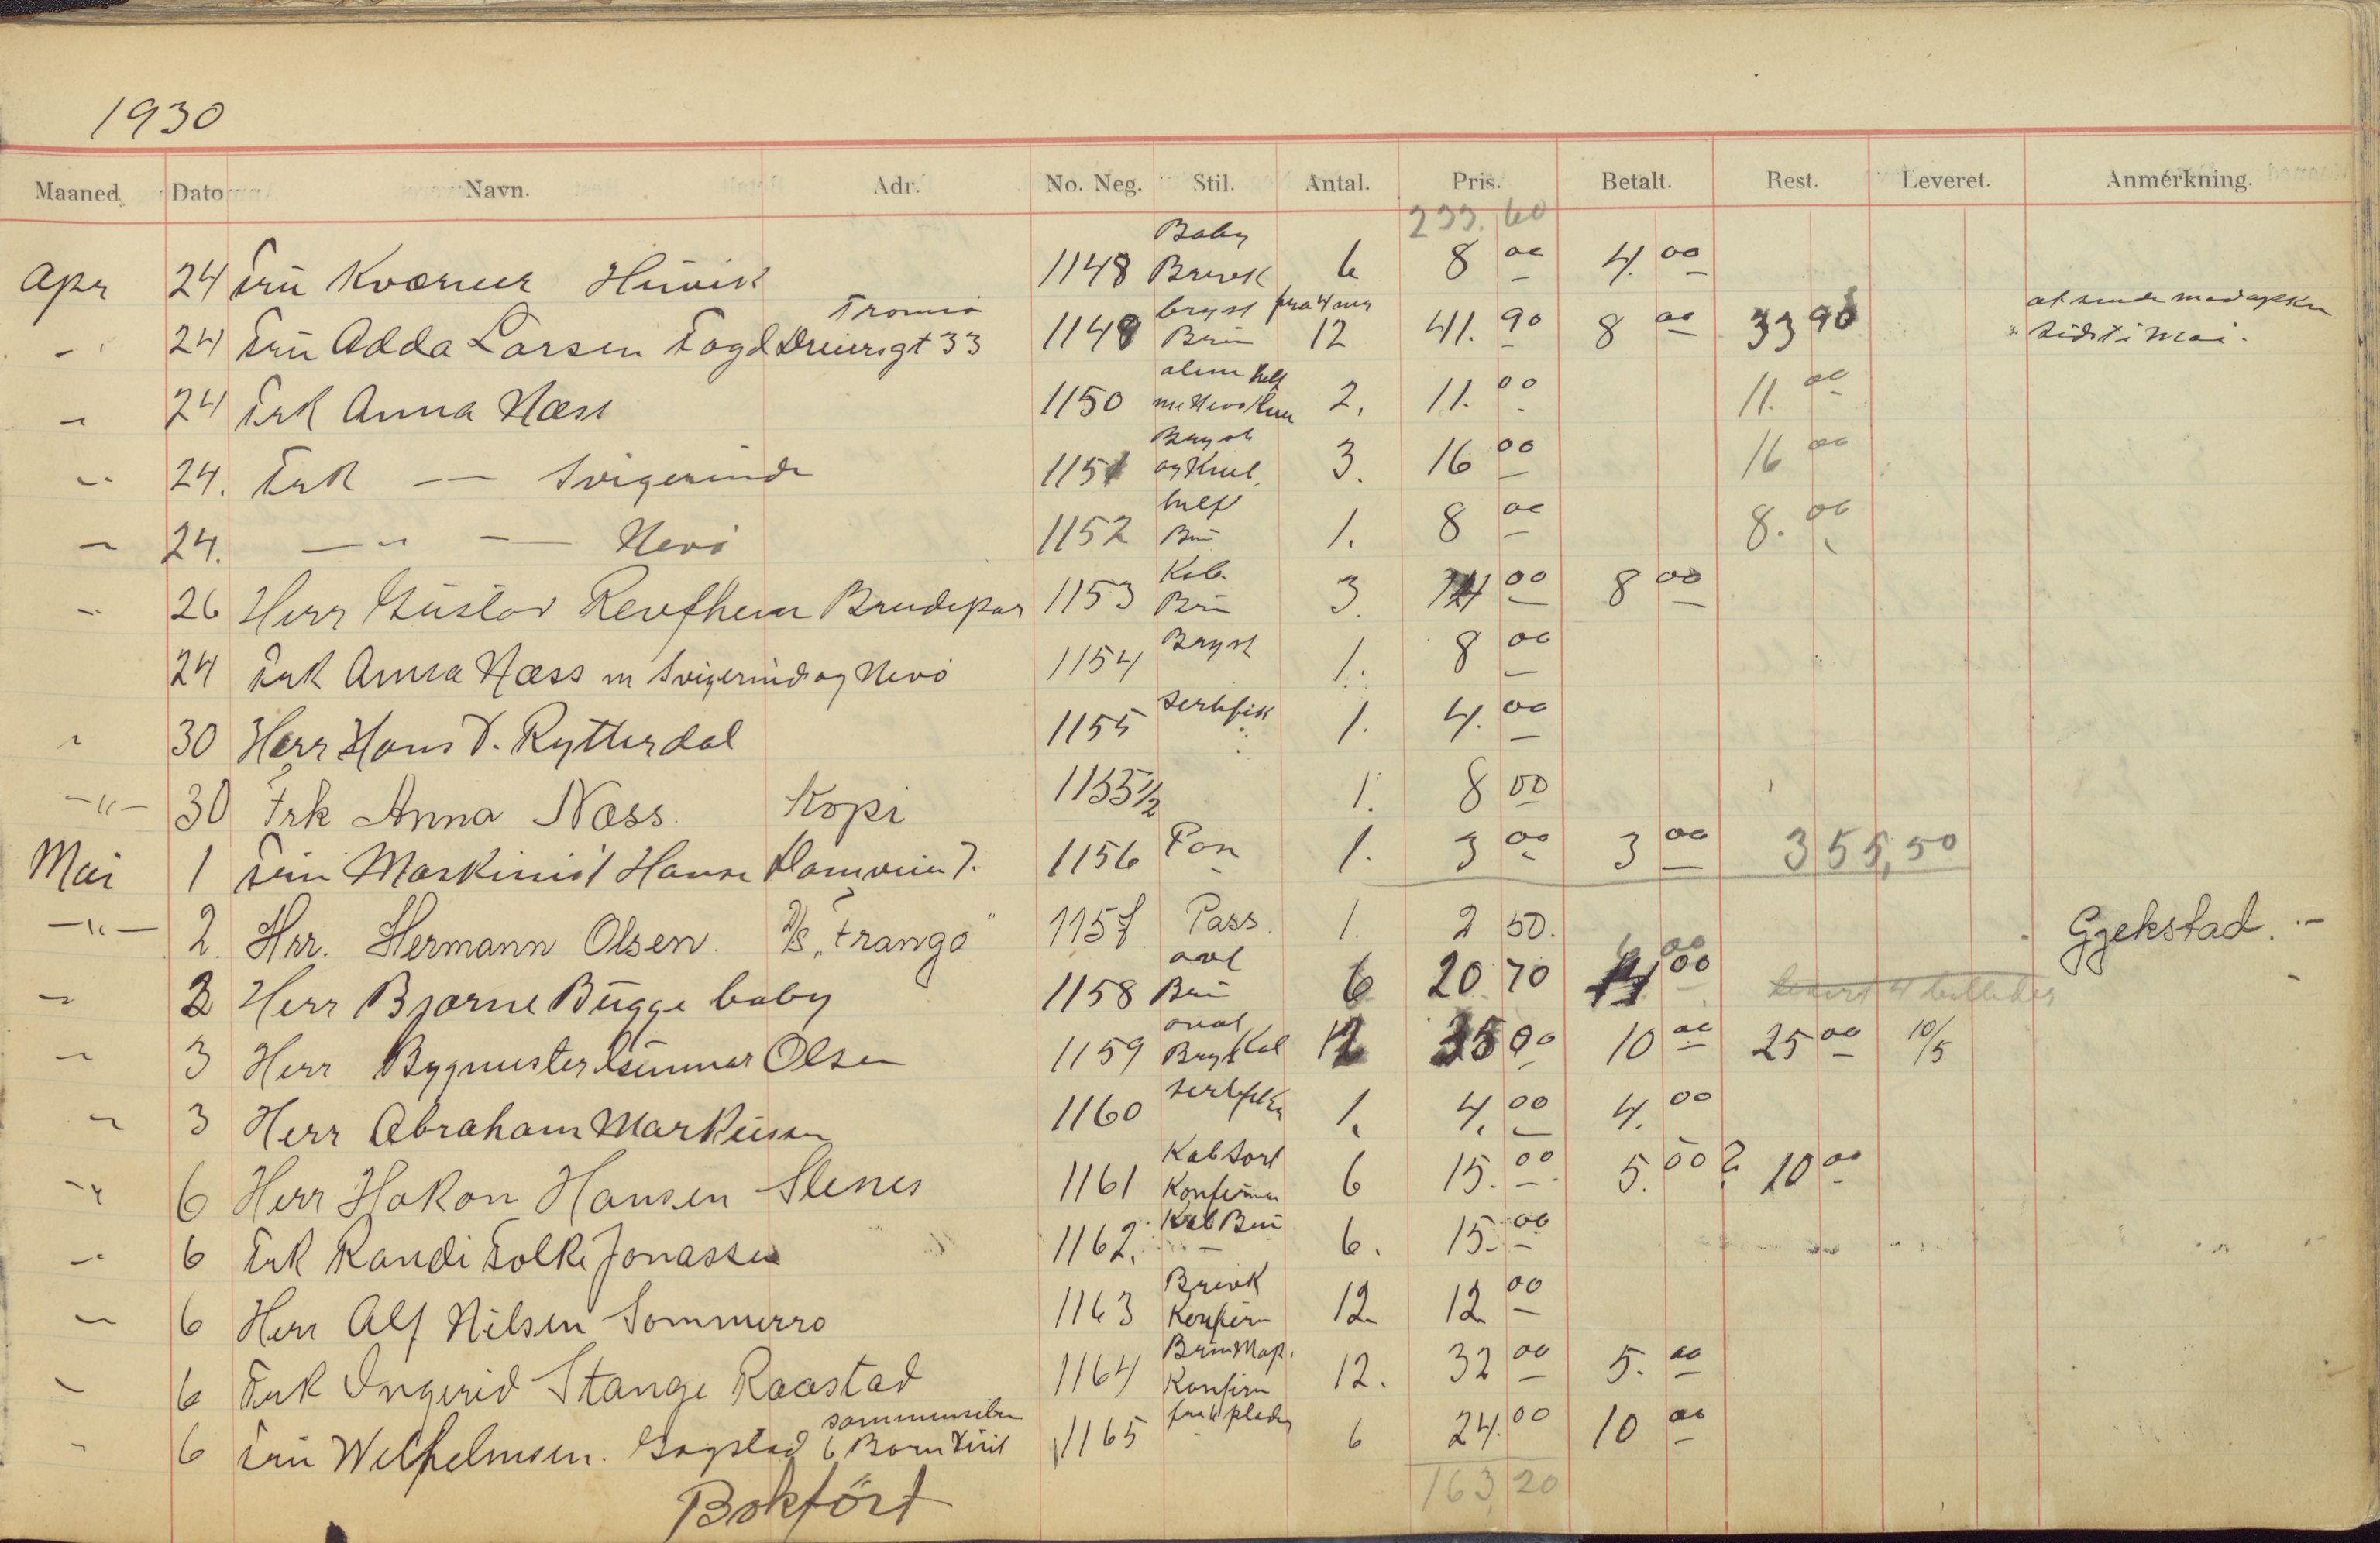 1930
Maaned Dato Navn. Adr. No. Neg. Stil. Antal. Pris. Betalt. Rest. Leveret. Anmerkning.
233.60
Apr 24 Fru Kværner Husvik 1148 Baby Brevk 6 8 00 4.00
24 Fru Adda Larsen Fogd Dreiersgt 33 Tromsö 1149 bryst Brun 12 41.90 8 00 33 90
24 Frk Anna Næss 1150 2. 11.00 11.00
24. Frk — Svigerinde 1151 Bryst og Knæ 3. 16 00 16 00
24. — " — Nevö 1152 helf Brun 1. 8 00 8.00
26 Herr Gustav Brudepar 1153 Kab. Brun 3. 14 00 8 00
24 Frk Anna Næss m Svigerind og Nevö 1154 Bryst 1. 8 00
30 Herr Hans V. Rytterdal 1155 Sertifik 1. 4.00
—"— 30 Frk Anna Næss. Kopi 1155 1/2 1. 8 00
Mai 1 Fru Maskinist Hansen 1156 1. 3 00 3 00 355,50
—"— 2. Hrr. Hermann Olsen. D/S. "Frango" 1157 Pass. 1. 2 50. Gjekstad. -
2 Herr Bjarne Bugge baby 1158 oval Brun 6 20 70 6 00
3 Herr Bygmester Gunnar Olsen 1159 oval Bryst Kab 12 35 00 10 00 25 00 10/5
3 Herr Abraham Markussen 1160 1. 4.00 4.00
6 Herr Hakon Hansen Slenes 1161 Kab Sort Konfirman 6 15.00 5.00? 10 00
6 Frk Randi Folke Jonassen 1162. Kab Brun 6. 15.00
6 Herr Alf Nilsen Sommerro 1163 Brevk Konfirm 12 12 00
6 Frk Ingerid Stange Raastad 1164 Brun Map. Konfirm 12. 32 00 5.00
6 Fru Wilhelmsen. Gogstad 6 Börn Visit 1165 6 24.00 10 00
163,20
Bokfört